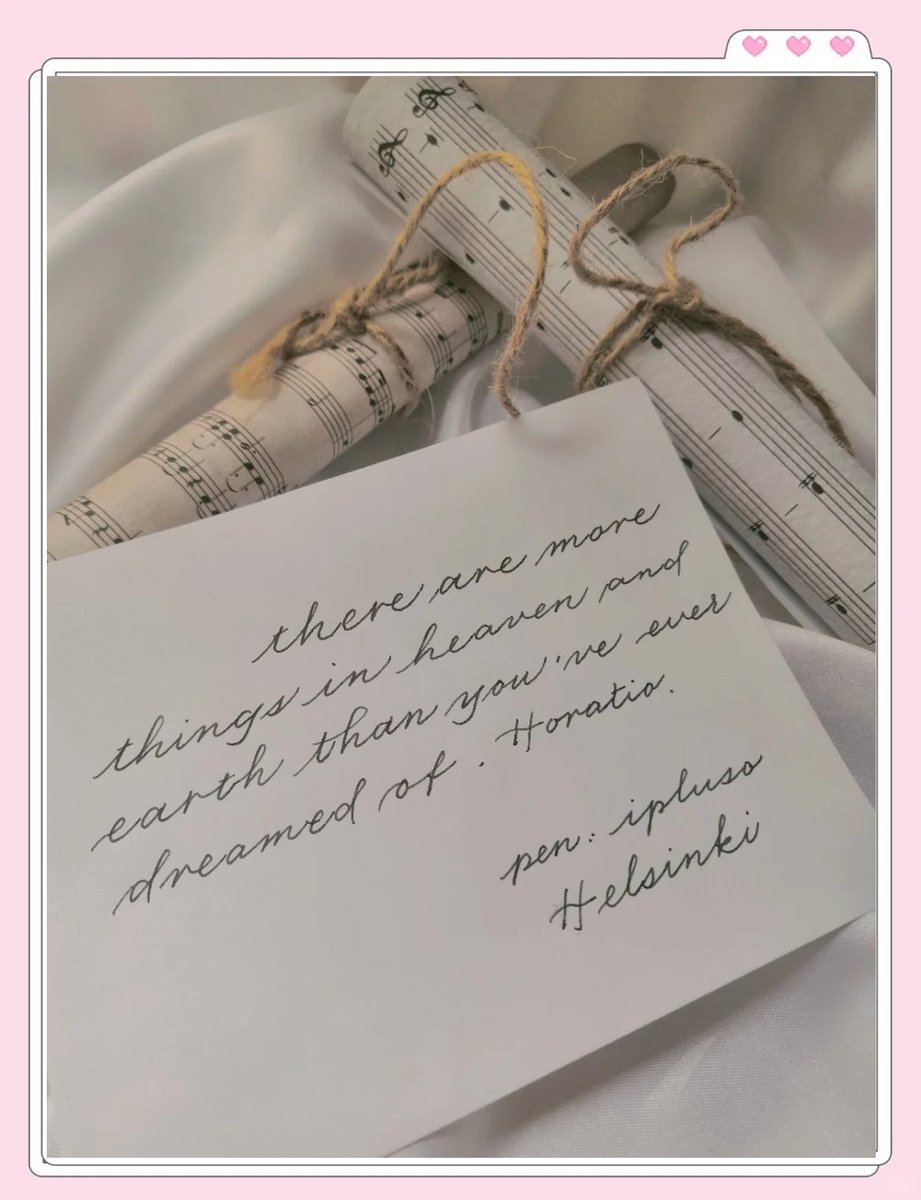 there are more
things in heaven and
earth than you've ever
dreamed of. Horatio.
pen: ipluso
Helsinki